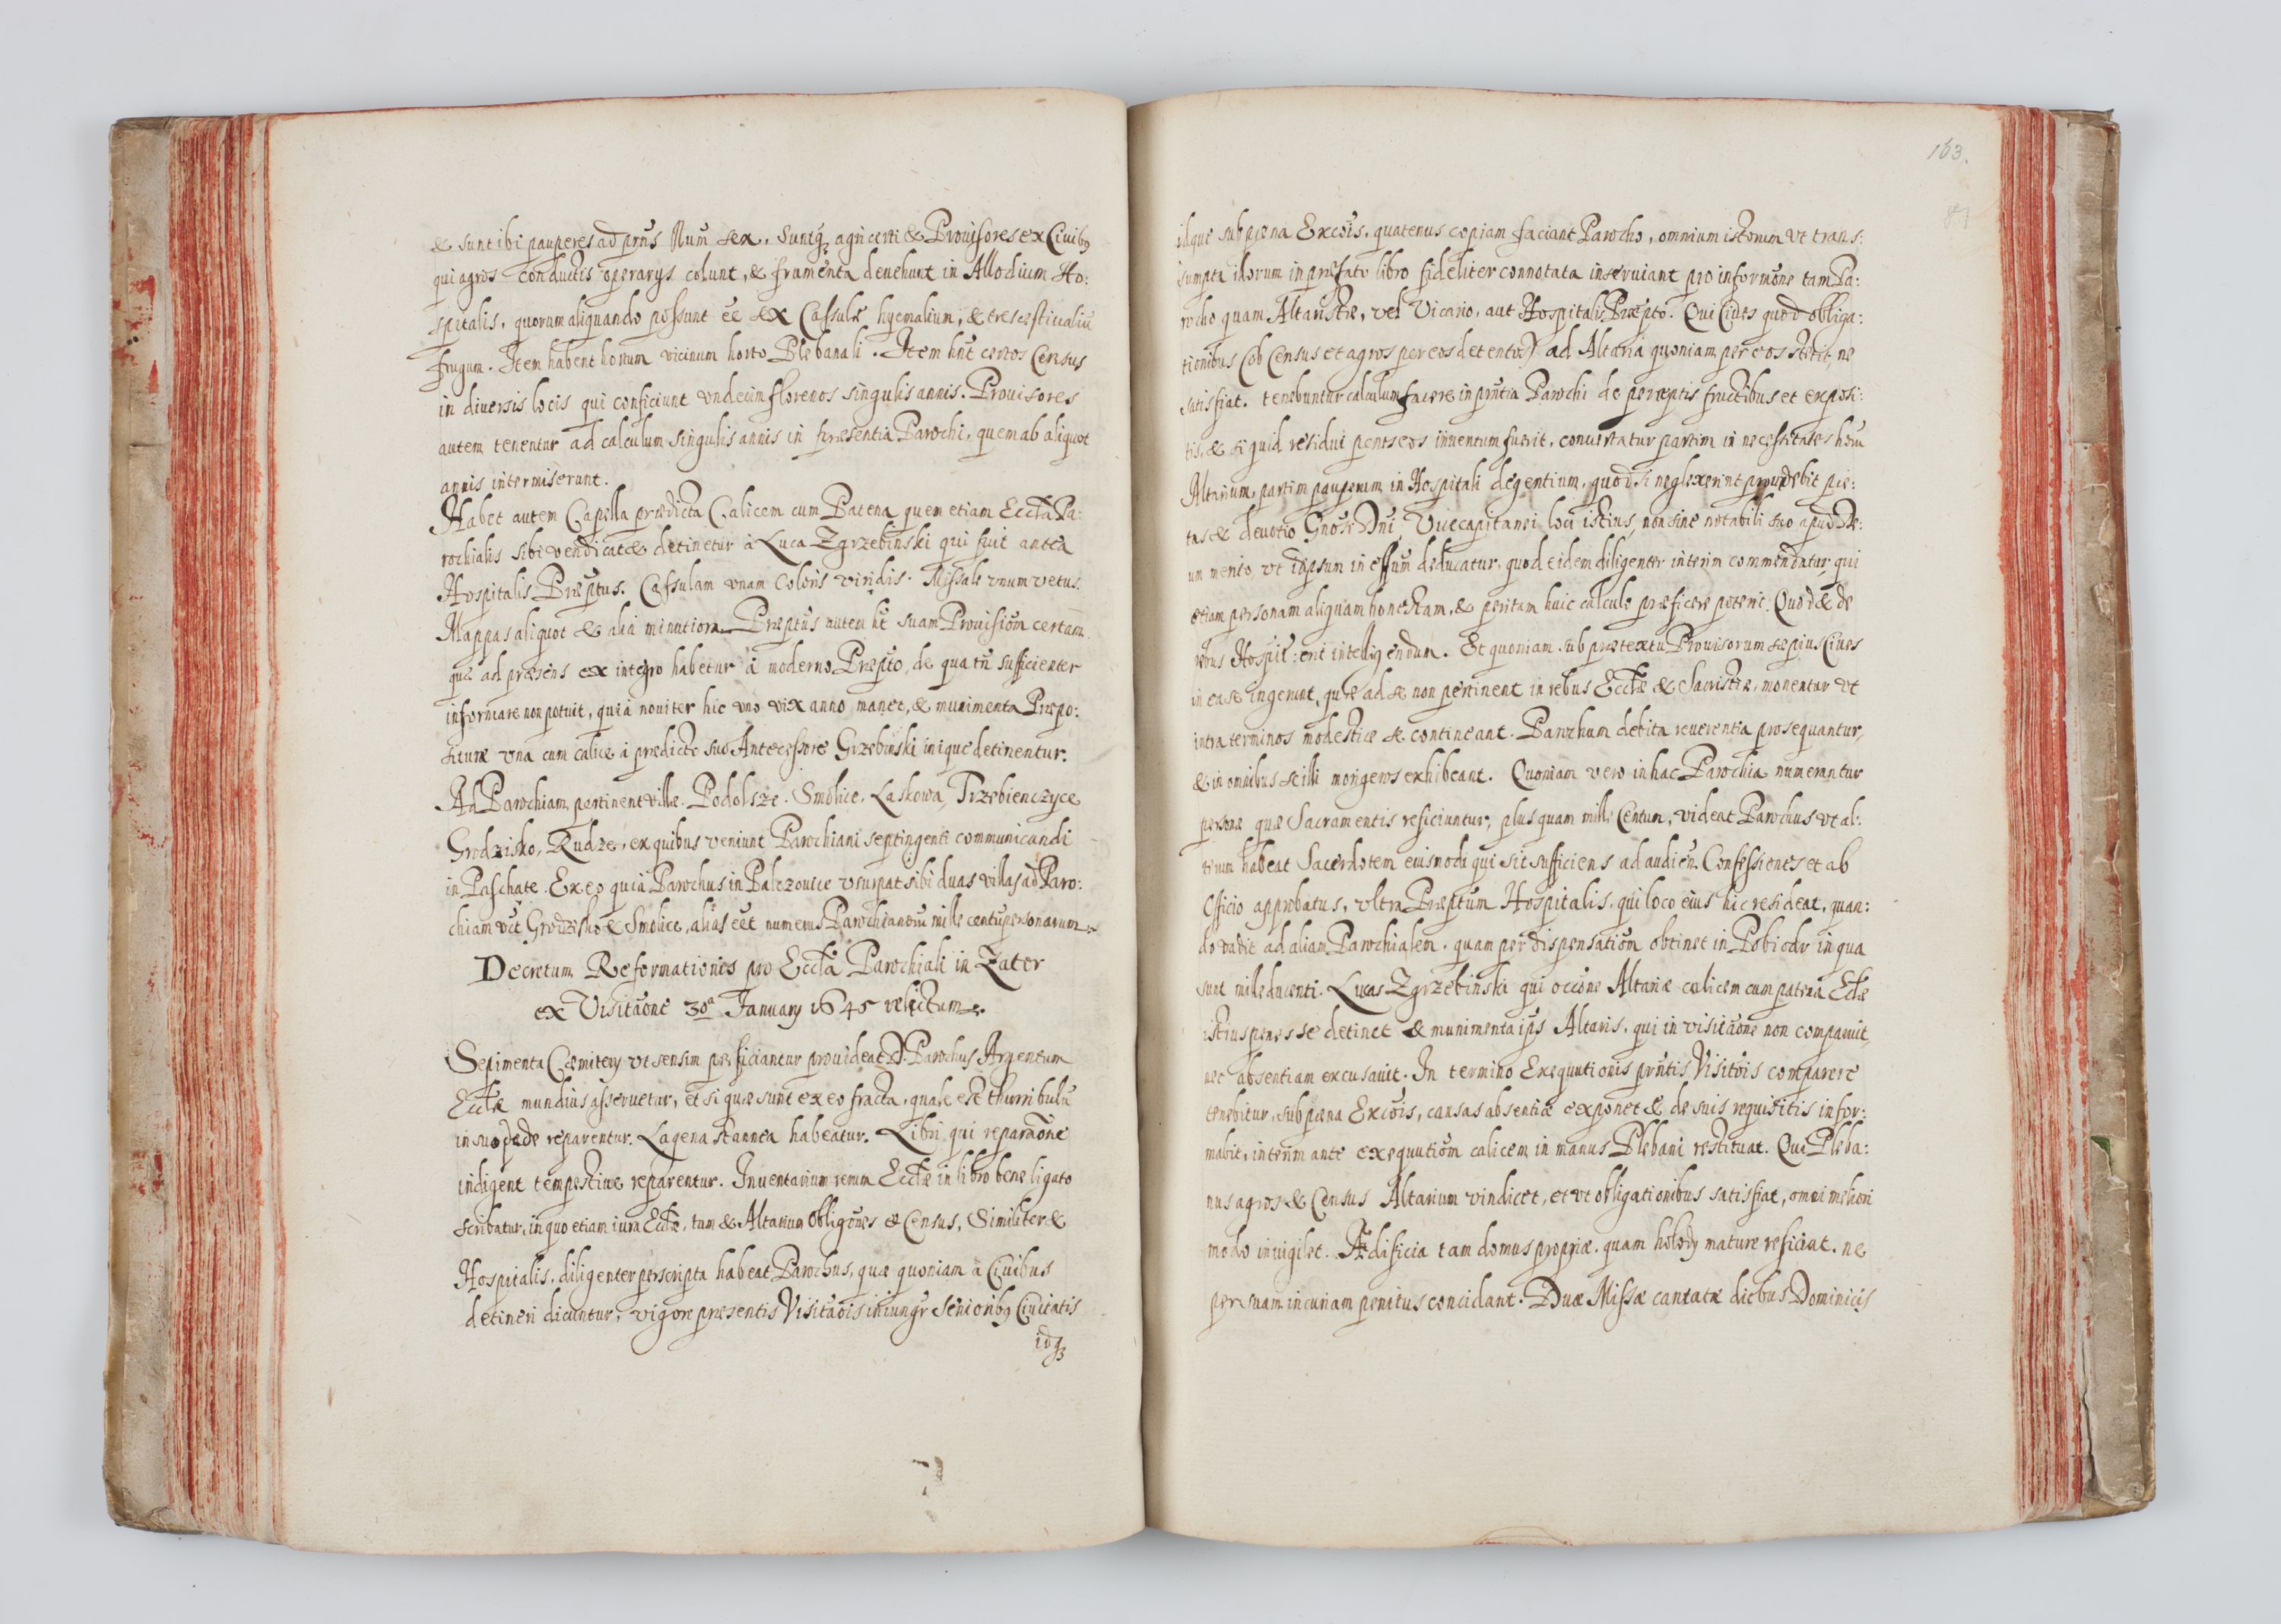 & sunt ibi pauperes ad prñs Num sex. Suntq; agri certi & Prouisores ex Ciuibq
qui agros conductis operarys colunt, & frumenta deuehunt in Allodium Ho:
spitalis, quorum aliquando possunt eē sex Cassulæ hyemalium, & tres æstiualiũ
frugum. Item habent hortum vicinum horto Plebanali. Item hñt certos Census
in diuersis locis qui conficiunt vndecim florenos singulis annis. Prouisores
autem tenentur ad calculum singulis annis in præsentia Parochi, quem ab aliquot
annis intermiserunt.
Habet autem Capella prædicta Calicem cum Patena quem etiam Eccła Pa:
rochialis sibi vendicat & detinetur à Luca Zgrzebinski qui fuit antea
Hospitalis Præptus. Cassulam vnam Coloris viridis. Missale vnum vetus.
Mappas aliquot & alia minutiora. Præptus autem ht suam Prouisiom certam
quæ ad præsens ex integro habetur à moderno Præpto, de qua tñ sufficienter
informare non potuit, quia nouiter hic vno vix anno manet, & munimenta Præpo:
situræ vna cum calice à predicto suo Antecessore Grzebinski inique detinentur.
Ad Parochiam pertinent villæ. Podolsze. Smolice. Laskowa, Trzebienczyce
Grodzisko, Rudze, ex quibus veniunt Parochiani septingenti communicandi
in Paschate. Ex eo quia Parochus in Palczouice vsurpat sibi duas villas ad Paro:
chiam vĩt Grodzisko & Smolice, aliàs eēt numerus Parochianorũ mille centũ personarum.
Decretum Reformationis pro Eccła Parochiali in Zator
ex Visitaone 30ª January 1645 relictum.
Sepimenta Cæmitery vt sensim perficiantur prouideat D. Parochus Argentum
Ecctæ mundius asseruetur, et si quæ sunt ex eo fracta, quale est thurribulũ
in suo pede reparentur. Lagena stannea habeatur. Libri, qui reparaone
indigent tempestiue reparentur. Inuentarium rerum Ecctæ in libro bene ligato
scribatur, in quo etiam iura Ecctæ, tum & Altarium obligões & Census, Similiter &
Hospitalis, diligenter perscripta habeat Parochus, quæ quoniam à Ciuibus
detineri dicuntur, vigore præsentis Visitaois iniungr Senioribq Ciuitatis
idq;
163.
idque sub pœna Excois. quatenus copiam faciant Parocho, omnium istorum vt trans:
sumpta illorum in præfato libro fideliter connotata inseruiant pro informone tam Pa:
rocho quam Altaristæ, vel Vicario, aut Hospitalis Præpto. Qui Ciues quod obliga:
tionibus (ob Census et agros per eos detentos) ad Altaria quoniam per eos stetit, ne
satisfiat. tenebuntur calculum facere in prñtia Parochi de perceptis fructibus et exposi:
tis, & si quid residui penes eos inuentum fuerit, conuertatur partim in necessitates horũ
Altarium, partim pauperum in Hospitali degentium, quod si neglexerint prouidebit pie:
tas & deuotio Gnose Dni, Vicecapitanei loci istius, non sine notabili suo apud De:
um merito, vt id ipsum in effum deducatur, quod eidem diligenter interim commendatur, qui
etiam personam aliquam honestam, & peritam huic calculo præficere poterit. Quod & de
rebus Hospit: erit intelligendum. Et quoniam sub prætextu Prouisorum sæpius Ciues
in ea se ingerunt, quæ ad se non pertinent in rebus Ecctæ & Sacristiæ, monentur vt
intra terminos modestiæ se contineant. Parochum debita reuerentia prosequantur,
& in omnibus se illi morigeros exhibeant. Quoniam vero in hac Parochia numerantur
personæ quæ Sacramentis reficiuntur, plus quam mille Centum, videat Parochus vt al:
terum habeat Sacerdotem eiusmodi qui sit sufficiens ad audien. Confessiones et ab
Officio approbatus, vltra Præptum Hospitalis, qui loco eius hic resideat, quan:
do vadit ad aliam Parochialem. quam per dispensatiom obtinet in Pobiedr in qua
sunt mille ducenti. Lucas Zgrzebinski qui occone Altariæ calicem cum patena Ecctæ
istius penes se detinet & munimenta ips Altaris, qui in visitaone non comparuit,
nec absentiam excusauit. In termino Exequutionis prñtis Visitois comparere
tenebitur, sub pœna Excois, causas absentiæ exponet & de suis requisitis infor:
mabit, interim ante exequutiom calicem in manus Plebani restituat. Qui Pleba:
nus agros & Census Altarium vindicet, et vt obligationibus satisfiat, omni meliori
modo inuigilet. Ædificia tam domus propriæ, quam holody mature reficiat. ne
per suam incuriam penitus concidant. Duæ Missæ cantatæ diebus Dominicis